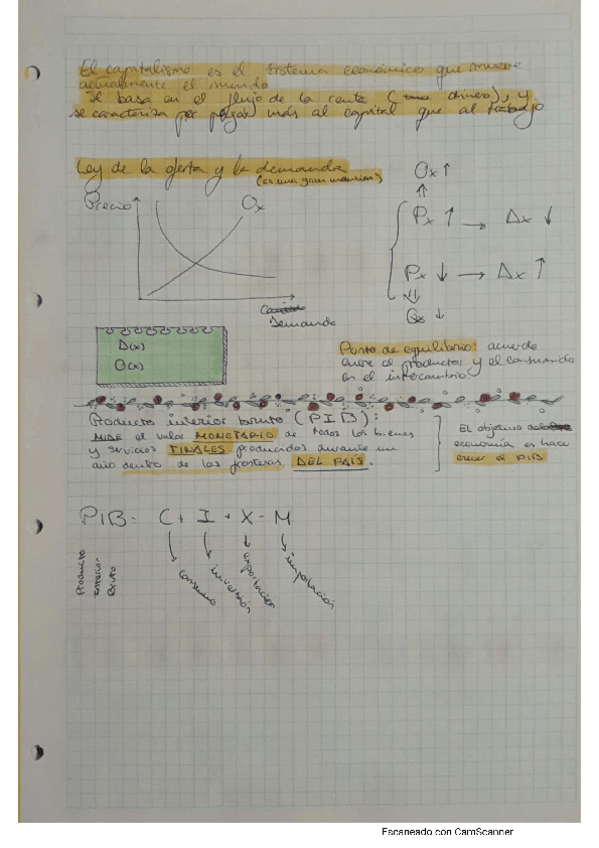 El capitalismo es el sistema económico que mueve
actualmente el mundo
Se basa en el flujo de la renta (dinero), y
se caracteriza por pagar más al capital que al trabajo
Ley de la oferta y la demanda
(es una gran mentira)
Precio
Ox
Demanda
D(x)
O(x)
Ox ↑
Px ↑ → Dx ↓
Px ↓ → Dx ↑
Ox ↓
Punto de equilibrio: acuerdo
entre el productor y el consumidor
en el intercambio
Producto interior bruto (PIB):
MIDE el valor MONETARIO de todos los bienes
y servicios FINALES producidos durante un
año dentro de las fronteras DEL PAÍS.
El objetivo de la
economía es hacer
crecer el PIB
PIB = C + I + X - M
Producto
Interior
Bruto
consumo
inversión
exportación
importación
Escaneado con CamScanner